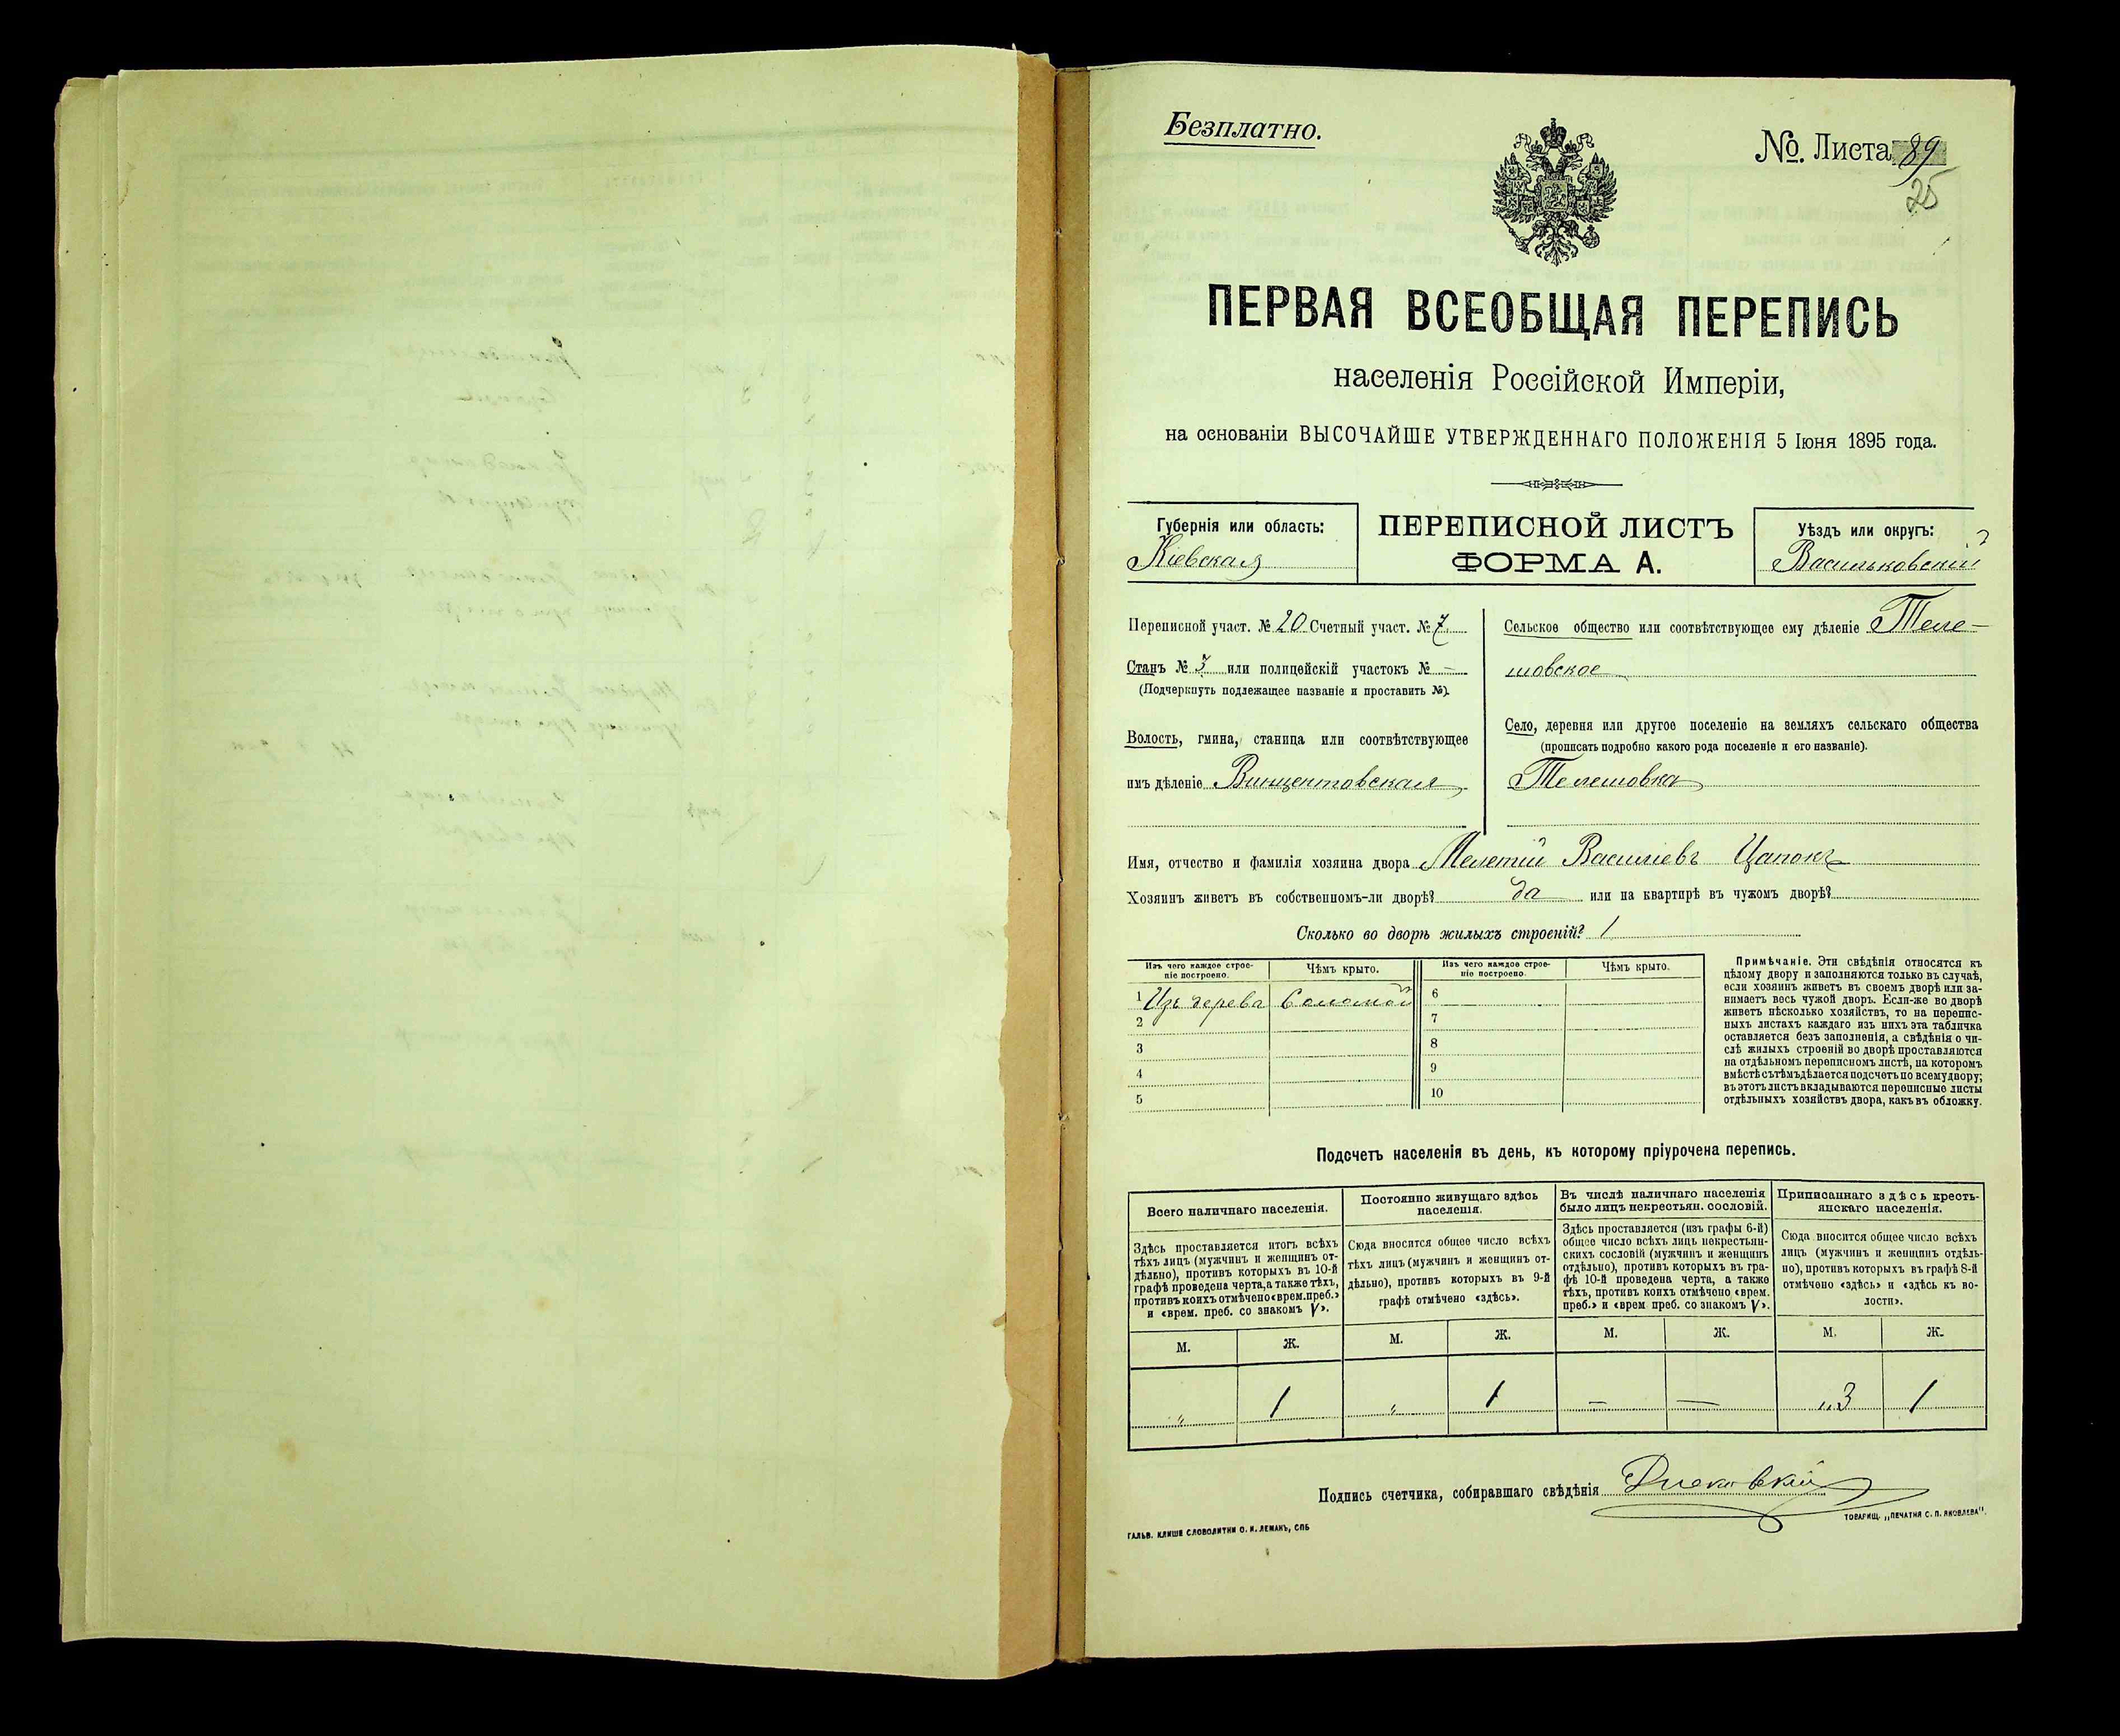 Безплатно.
№. Листа 89
25
ПЕРВАЯ ВСЕОБЩАЯ ПЕРЕПИСЬ
населенія Россійской Имперіи,
на основаніи ВЫСОЧАЙШЕ УТВЕРЖДЕННАГО ПОЛОЖЕНІЯ 5 Іюня 1895 года.
Губернія или область:
Кіевская
ПЕРЕПИСНОЙ ЛИСТЪ
ФОРМА А.
Уѣздъ или округъ:
Васильковскій
Переписной участ. № 20 Счетный участ. № 7
Станъ № 3 или полицейскій участокъ № —
(Подчеркнуть подлежащее названіе и проставить №).
Волость, гмина, станица или соотвѣтствующее
имъ дѣленіе Винцентовская
Сельское общество или соотвѣтствующее ему дѣленіе Теле-
шовское
Село, деревня или другое поселеніе на земляхъ сельскаго общества
(прописать подробно какого рода поселеніе и его названіе).
Телешовка
Имя, отчество и фамилія хозяина двора Мелетій Василіевъ Цапокъ
Хозяинъ живетъ въ собственномъ-ли дворѣ? да или на квартирѣ въ чужомъ дворѣ?
Сколько во дворѣ жилыхъ строеній? 1
Изъ чего каждое строе-
ніе построено.
Чѣмъ крыто.
Изъ чего каждое строе-
ніе построено.
Чѣмъ крыто.
1 Изъ дерева Соломой
2
3
4
5
6
7
8
9
10
Примѣчаніе. Эти свѣдѣнія относятся къ
цѣлому двору и заполняются только въ случаѣ,
если хозяинъ живетъ въ своемъ дворѣ или за-
нимаетъ весь чужой дворъ. Если-же во дворѣ
живетъ нѣсколько хозяйствъ, то на перепис-
ныхъ листахъ каждаго изъ нихъ эта табличка
оставляется безъ заполненія, а свѣдѣнія о чи-
слѣ жилыхъ строеній во дворѣ проставляются
на отдѣльномъ переписномъ листѣ, на которомъ
вмѣстѣ съ тѣмъ дѣлается подсчетъ по всему двору;
въ этотъ листъ вкладываются переписные листы
отдѣльныхъ хозяйствъ двора, какъ въ обложку.
Подсчетъ населенія въ день, къ которому пріурочена перепись.
Всего наличнаго населенія.
Здѣсь проставляется итогъ всѣхъ
тѣхъ лицъ (мужчинъ и женщинъ от-
дѣльно), противъ которыхъ въ 10-й
графѣ проведена черта, а также тѣхъ,
противъ коихъ отмѣчено «врем. преб.»
и «врем. преб. со знакомъ V».
Постоянно живущаго здѣсь
населенія.
Сюда вносится общее число всѣхъ
тѣхъ лицъ (мужчинъ и женщинъ от-
дѣльно), противъ которыхъ въ 9-й
графѣ отмѣчено «здѣсь».
Въ числѣ наличнаго населенія
было лицъ некрестьян. сословій.
Здѣсь проставляется (изъ графы 6-й)
общее число всѣхъ лицъ некрестьян-
скихъ сословій (мужчинъ и женщинъ
отдѣльно), противъ которыхъ въ гра-
фѣ 10-й проведена черта, а также
тѣхъ, противъ коихъ отмѣчено «врем.
преб.» и «врем. преб. со знакомъ V».
Приписаннаго здѣсь кресть-
янскаго населенія.
Сюда вносится общее число всѣхъ
лицъ (мужчинъ и женщинъ отдѣль-
но), противъ которыхъ въ графѣ 8-й
отмѣчено «здѣсь» и «здѣсь къ во-
лости».
М. Ж. М. Ж. М. Ж. М. Ж.
„ 1 „ 1 — — „3 1
Подпись счетчика, собиравшаго свѣдѣнія
ГАЛЬВ. КЛИШЕ СЛОВОЛИТНИ О. И. ЛЕМАНЪ, СПБ
ТОВАРИЩ. „ПЕЧАТНЯ С. П. ЯКОВЛЕВА".